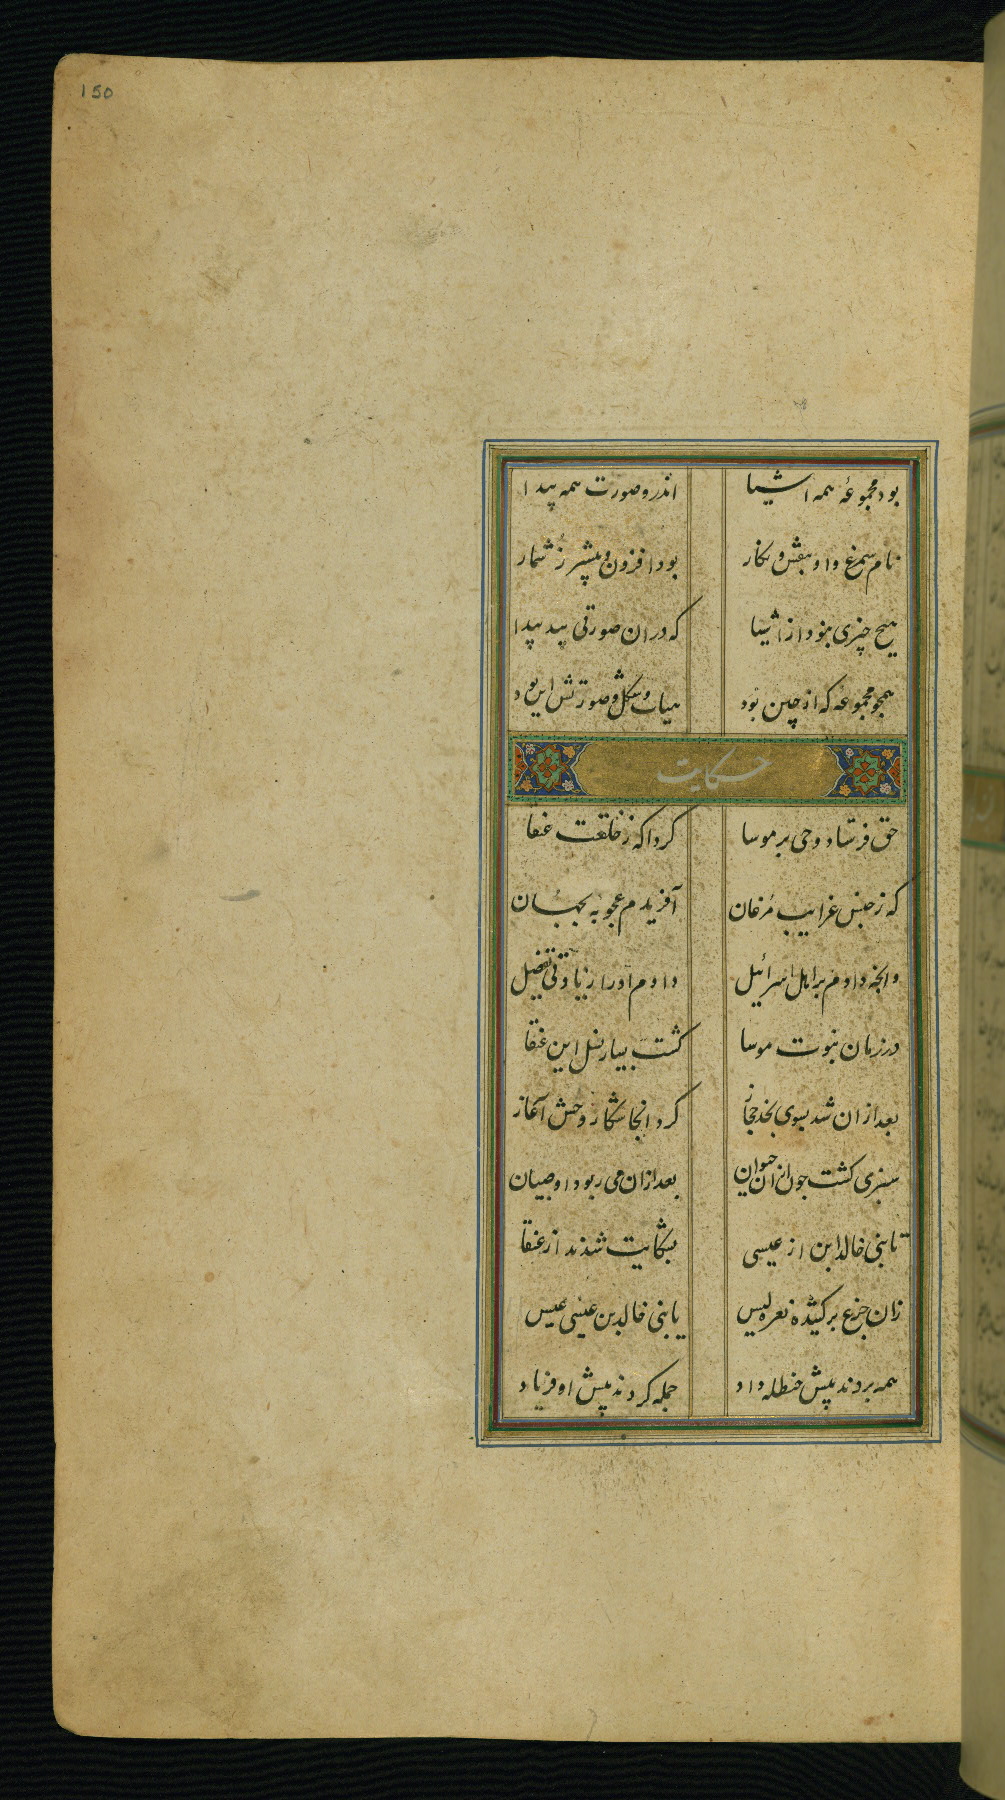 150
بود مجموعهٔ همه اشیا اندرو صورت همه پیدا
نام سیمرغ و او بنقش و نکار بود افزون و بیشتر ز شمار
هیچ چیزی بنود از اشیا که دران صورتی پید پیدا
همجو مجموعهٔ که از چین بود هیات و شکل و صورتش این بود
حکایت
حق فرستاد وحی بر موسا کرد اکه ز خلقت عنقا
که ز جنس غرایب مرغان آفریدم عجوبه بجهان
وانجه دادم بر اهل اسرائیل دادم او را زیادتی تفضیل
در زمان نبوت موسا کشت بسیار نسل این عنقا
بعد ازان شد بسوی نجد حجاز کرد انجا شکار وحش آغاز
سبری کشت جون ازان حیوان بعد ازان می ربود او صبیان
تا بنی خالد ابن از عیسی بشکایت شدند از عنقا
زان جزع بر کشیده نعره لیس یا بنی خالد بن عیسی عیس
همه بردند پیش حنظله داد جمله کردند پیش او فریاد